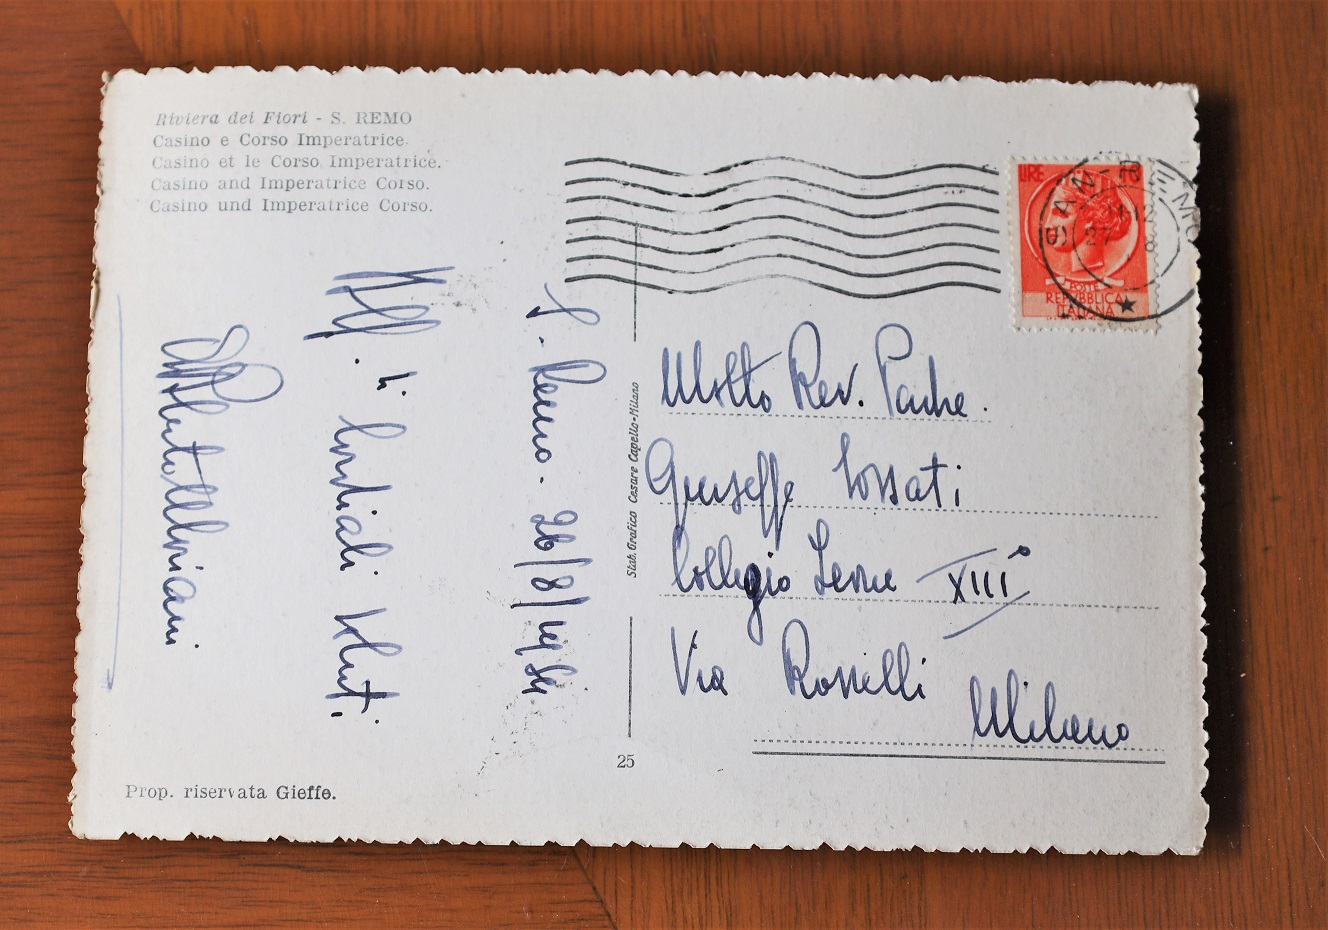 Riviera dei Fiori - S. REMO
Casino e Corso Imperatrice.
Casino et le Corso Imperatrice.
Casino and Imperatrice Corso.
Casino und Imperatrice Corso.
S. Remo. 26/8/1954
Aff.ti Cordiali saluti.
Stab. Grafico Cesare Capello-Milano
LIRE
POSTE
REPVBBLICA
ITALIANA
SAN
Molto Rev. Padre.
Giuseppe Lossati
Collegio Leone XIII°
Via Rosselli
Milano
25
Prop. riservata Gieffe.